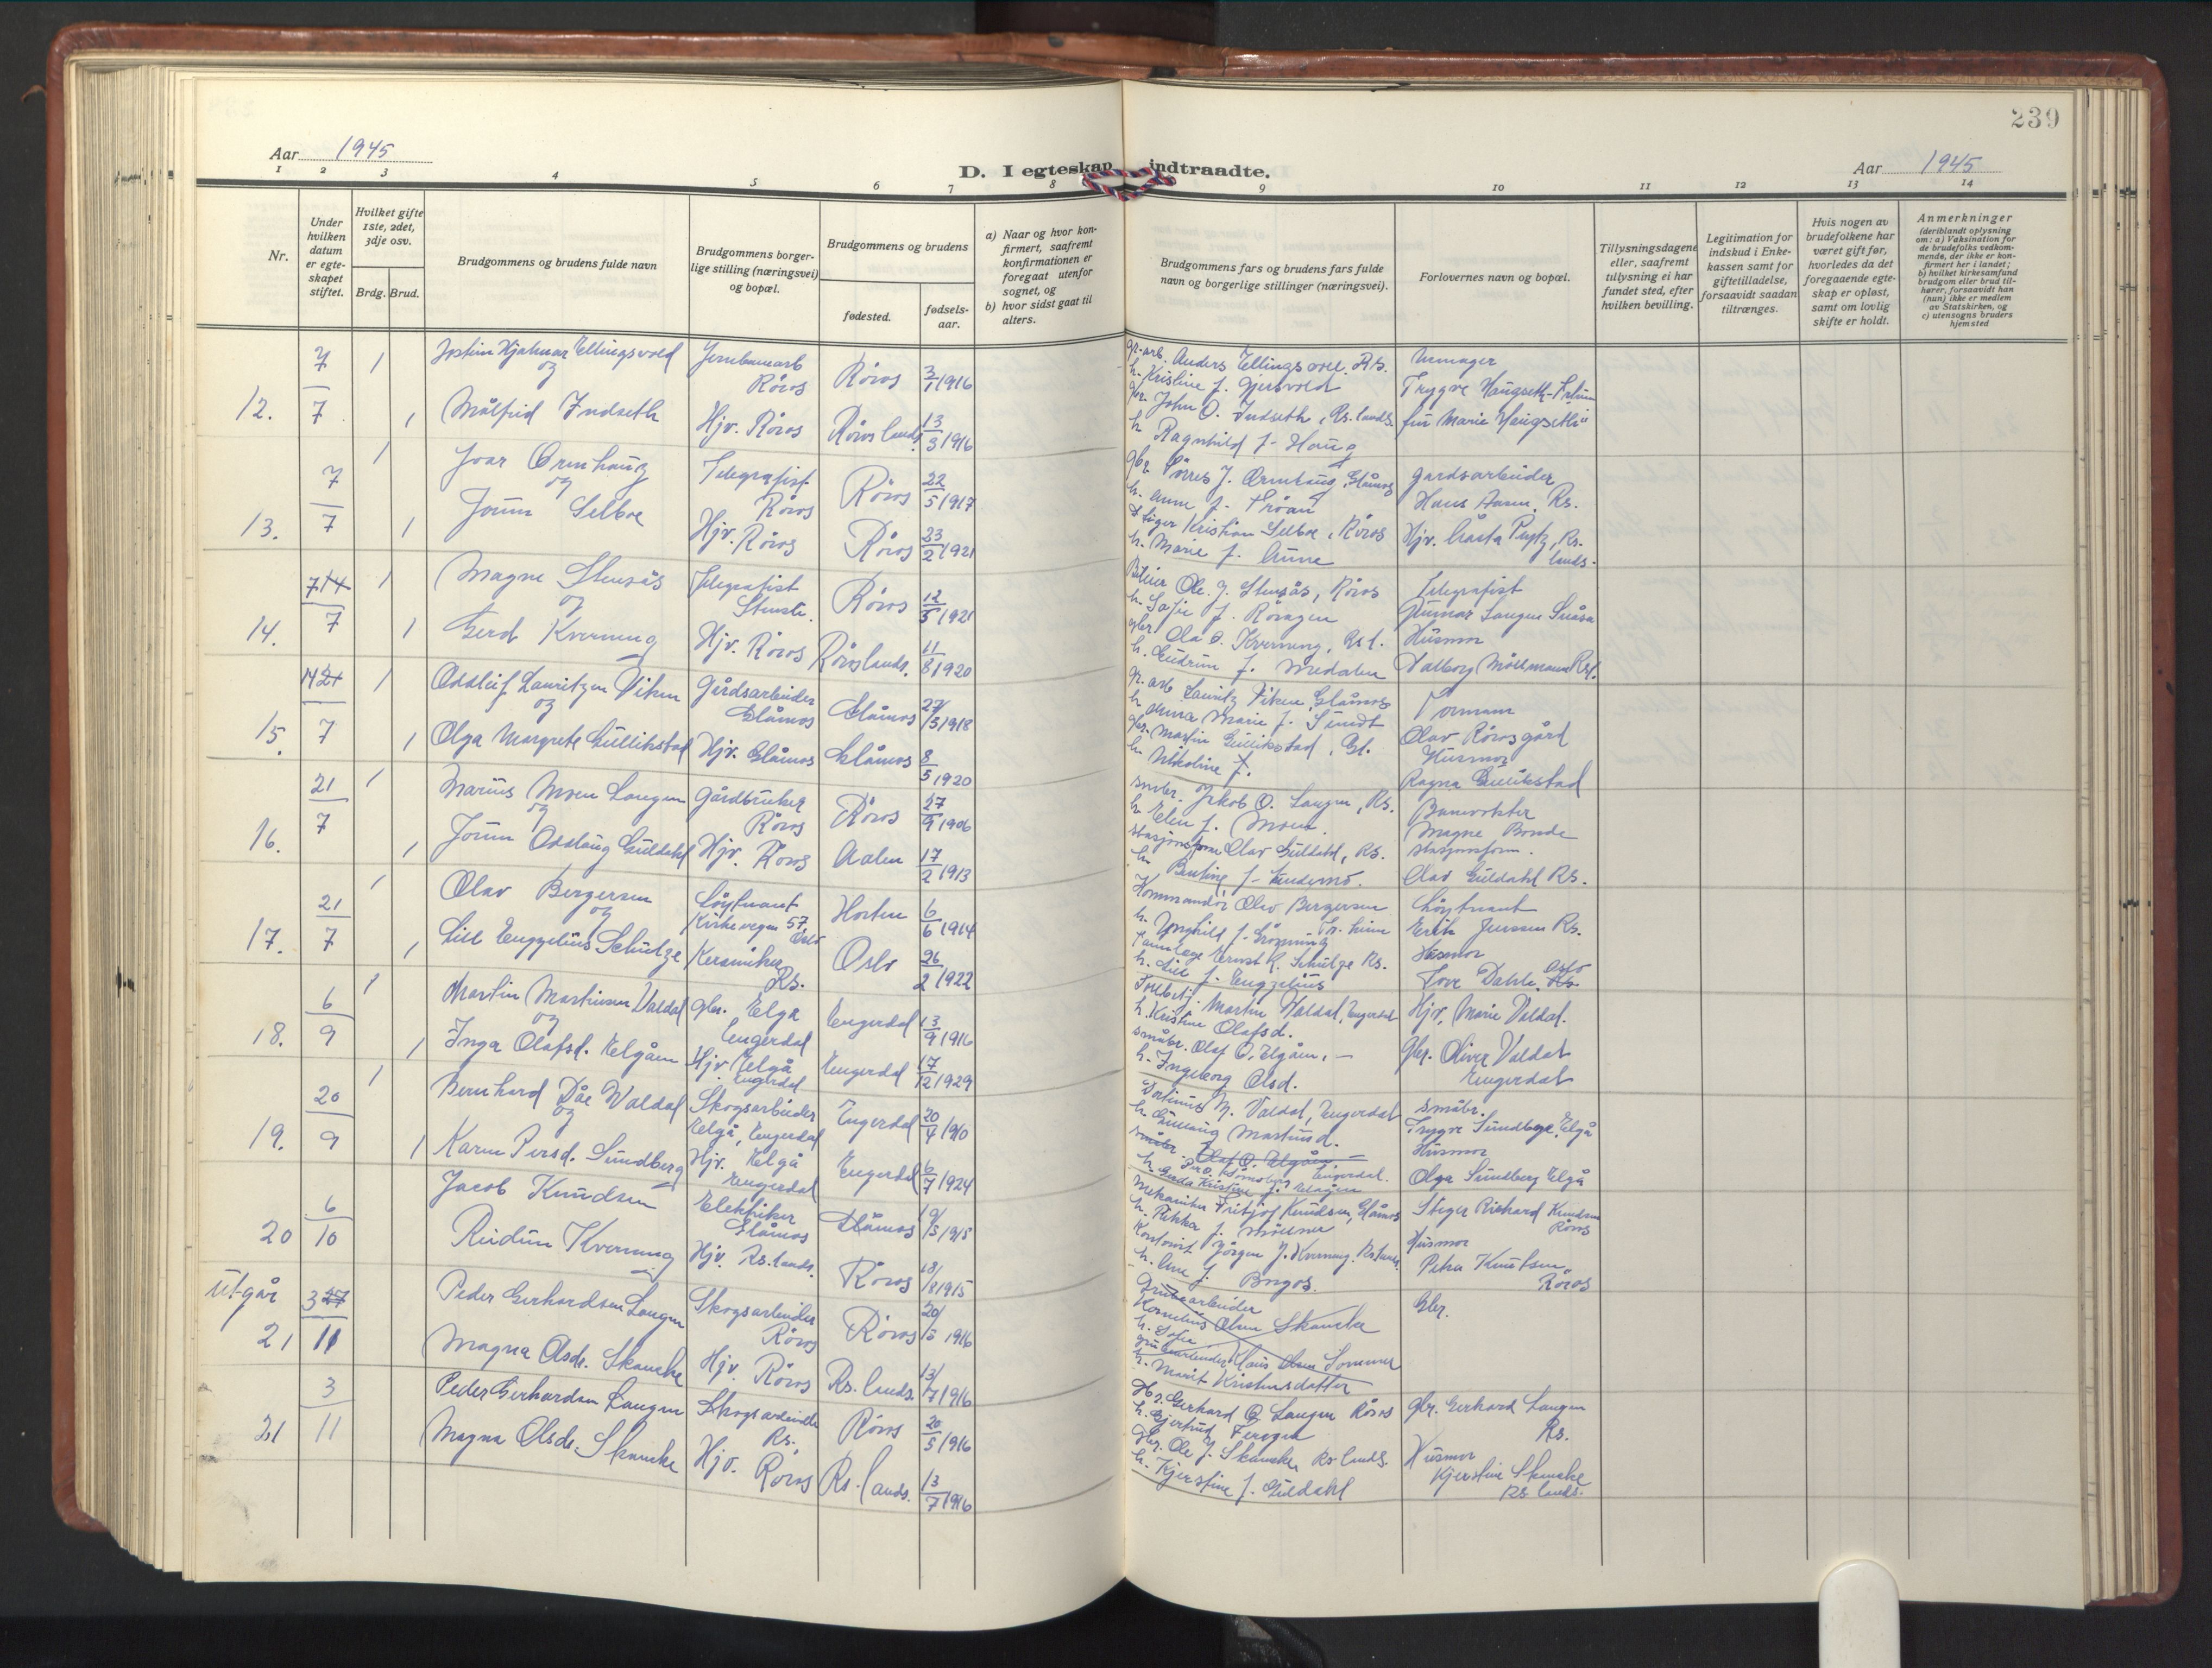 239
Aar 1945
D. I egteskap indtraadte.
Aar 1945
1 2 3 4 5 6 7 8 9 10 11 12 13 14
Nr.
Under hvilken datum er egte-skapet stiftet.
Hvilket gifte 1ste, 2det, 3dje osv.
Brdg. Brud.
Brudgommens og brudens fulde navn
Brudgommens borger-lige stilling (næringsvei) og bopæl.
Brudgommens og brudens
fødested.
fødsels-aar.
a) Naar og hvor kon-firmert, saafremt konfirmationen er foregaat utenfor sognet, og
b) hvor sidst gaat til alters.
Brudgommens fars og brudens fars fulde navn og borgerlige stillinger (næringsvei).
Forlovernes navn og bopæl.
Tillysningsdagene eller, saafremt tillysning ei har fundet sted, efter hvilken bevilling.
Legitimation for indskud i Enke-kassen samt for giftetilladelse, forsaavidt saadan tiltrænges.
Hvis nogen av brudefolkene har været gift før, hvorledes da det foregaaende egte-skap er opløst, samt om lovlig skifte er holdt.
Anmerkninger
(deriblandt oplysning om: a) Vaksination for de brudefolks vedkom-mende, der ikke er kon-firmert her i landet;
b) hvilket kirkesamfund brudgom eller brud til-hører, forsaavidt han (hun) ikke er medlem av Statskirken, og
c) utensogns bruders hjemsted
12. 7/7 1 Hjalmar Ellingsvold Røros Røros 3/1 1916
og
1 Målfrid Indseth Hjv. Røros Røros lands. 13/3 1916
gr.arb. Anders Ellingsvold, Rs.
h. Kristine f. Gjersvold
John O. Indseth, Rs. lands.
h. Ragnhild f. Haug
Trygve Haugseth
Marie Haugseth
13. 7/7 1 Ivar Ormhaug Telegrafist Røros Røros 22/5 1917
og
1 Jorun Selboe Hjv. Røros Røros 23/2 1921
gbr. J. Ormhaug, Glåmos
h. Anne f.
Stiger Kristian Selboe, Røros
h. Marie f. Aune
Gardsarbeider
Hans Aasen, Rs.
Hjv. Rs. lands.
14. 7/7 1 Magne Stensås Telegrafist Røros 12/5 1921
og
1 Gerd Kverneng Hjv. Røros Røros lands. 11/8 1920
Ole J. Stensås, Røros
h. f. Røragen
gbr. Ola O. Kverneng, Rs l.
h. Gudrun f. Medalen
Telegrafist
Gunnar Langen Snåsa
Husmor
Valborg Møllmann Rs l.
15. 14/7 1 Oddleif Lauritzen Viken Gårdsarbeider Glåmos Glåmos 27/5 1918
og
1 Olga Margrete Gullikstad Hjv. Glåmos Glåmos 8/5 1920
gr. arb Lauritz Viken, Glåmos
h. Anna Marie f. Sundt
gbr. Martin Gullikstad, Gl.
h. Nikoline f.
Formann
Olav Rørosgård
Husmor
Ragna Gullikstad
16. 21/7 1 Marius Moen Langen Gårdbruker Røros Røros 27/9 1906
og
1 Jorun Oddlaug Guldahl Hjv. Røros Aalen 17/2 1913
Jakob O. Langen, Rs.
h. Elen f. Moen.
Olav Guldahl, Rs.
h. Bentine f.
Banevokter
Magne Bonde
stasjonsform.
Olav Guldahl Rs.
17. 21/7 1 Olav Bergersen Løytnant Kirkevegen 57, Oslo Horten 6/6 1914
og
1 Lill Enggelius Schulze Keramiker Rs. Oslo 26/2 1922
Kommandør Olav Bergersen
h. Ynghild f. Grønning
Tannlege Ernst R. Schulze Rs.
h. Lill f. Enggelius
Løytnant
Erik Jenssen Rs.
Husmor
Tove Dahle, Oslo
18. 6/9 1 Martin Martinsen Valdal gbr. Elgå Engerdal Engerdal 13/9 1916
og
1 Inga Olafsd. Elgåen Hjv Elgå Engerdal Engerdal 17/12 1929
Martin Valdal, Engerdal
h. Kristine Olafsd.
småbr. Olaf O. Elgåen, —
h. Ingeborg Olsd.
Hjv. Marie Valdal.
gbr. Oliver Valdal
Engerdal
19. 20/9 1 Bernhard Dåe Valdal Skogsarbeider Elgå, Engerdal Engerdal 20/4 1910
og
1 Karen Persd. Sundberg Hjv. Elgå Engerdal Engerdal 6/7 1924
M. Valdal, Engerdal
h. Gunlaug Martinsd.
Olaf O. Elgåen
Engerdal.
småbr.
Trygve Sundberg, Elgå
Husmor
Olga Sundberg Elgå
20 6/10 Jacob Knudsen Elektriker Glåmos Glåmos 19/5 1915
Reidun Kverneng Hjv. Rs. lands. Røros 18/8 1915
Mekaniker Fritjof Knudsen, Glåmos
h. Rikka f. Møllmer
Jørgen J. Kverneng, Rs lands.
h. Ane f. Borgos.
Stiger Rikhard Knudsen
Røros
Husmor
Petra Knutsen,
Røros
Utgår
21 3/11 Peder Gerhardsen Langen Skogsarbeider Røros Røros 20/5 1916
Magna Olsdr. Skancke Hjv. Røros Rs. lands. 13/7 1916
Grubearbeider
Kornelius Olsen Skancke
h. Sofie
grubearbeider Hans Olsen Sommer
h. Marit Kristensdatter
Gbr.
21 3/11 Peder Gerhardsen Langen Skogsarbeider Rs. Røros 20/5 1916
Magna Olsdr. Skancke Hjv. Røros Rs. lands. 13/7 1916
Gerhard O. Langen Røros
h. Gjertrud Feragen
Gbr. Ole J. Skancke Rs lands.
h. Kjerstine f. Guldahl
gbr. Gerhard Langen
Rs.
Husmor
Kjerstine Skancke
Rs. lands.